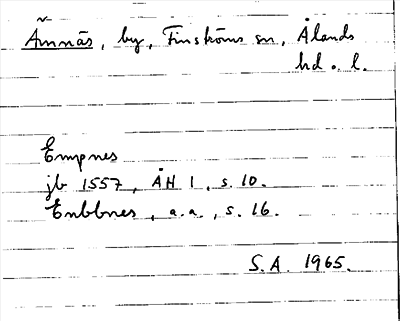 Ämnäs, by, Finströms sn, Ålands
hd o. l.
Empnes
jb 1557, ÅH 1, s. 10.
Enbbnes, a.a., s. 16.
S.A. 1965.